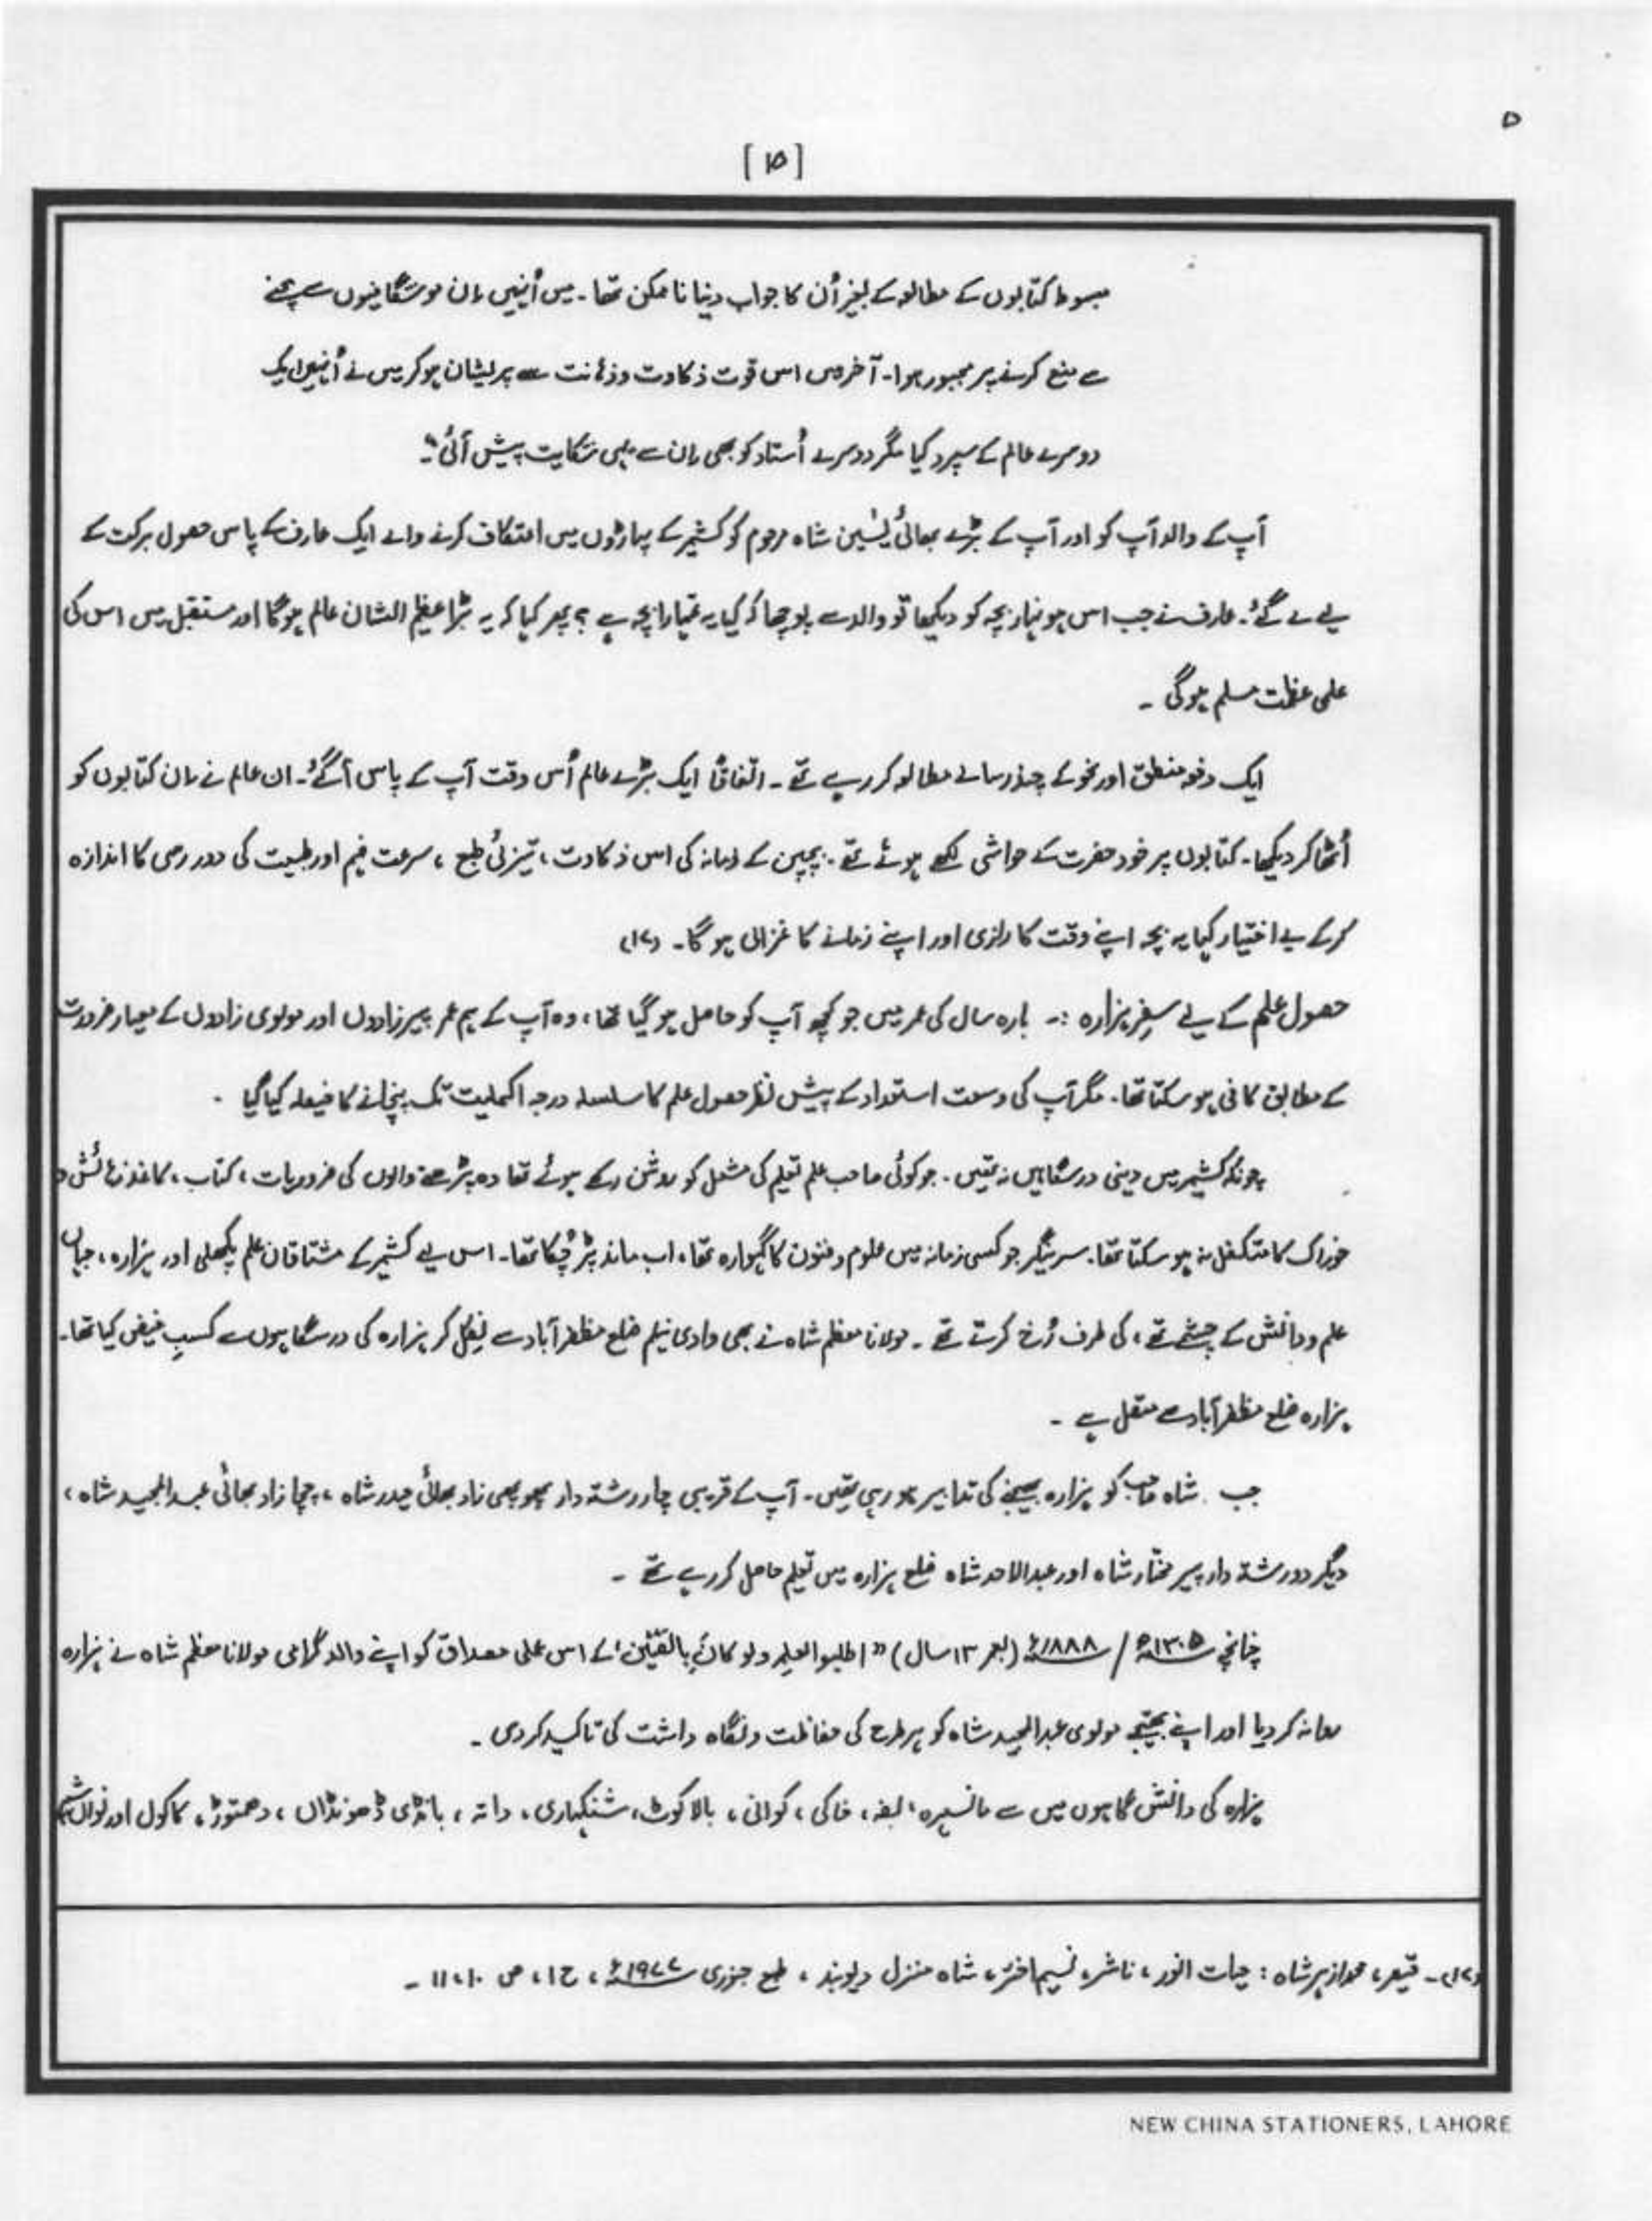 ۵
[ ۱۵ ]
مبسوط کتابوں کے مطالعہ کے بغیر اُن کا جواب دینا ناممکن تھا۔ میں اُنہیں اِن موشگافیوں سے بچنے
سے منع کرنے پر مجبور ہوا۔ آخر میں اس قوت ذکاوت وذہانت سے پریشان ہوکر میں نے اُنہیں ایک
دوسرے عالم کے سپرد کیا مگر دوسرے اُستاد کو بھی اِن سے یہی شکایت پیش آئی"۔
آپ کے والد آپ کو اور آپ کے بڑے بھائی یٰسین شاہ مرحوم کو کشمیر کے پہاڑوں میں اعتکاف کرنے والے ایک عارف کے پاس حصول برکت کے
لیے لے گئے۔ عارف نے جب اس ہونہار بچہ کو دیکھا تو والد سے پوچھا کہ کیا یہ تمہارا بچہ ہے ؟ پھر کہا کہ یہ بڑا عظیم الشان عالم ہوگا اور مستقبل میں اس کی
علمی عظمت مسلم ہوگی ۔
ایک دفعہ منطق اور نحو کے چند رسالے مطالعہ کر رہے تھے ۔ اتفاقاً ایک بڑے عالم اُس وقت آپ کے پاس آگئے۔ ان عالم نے اِن کتابوں کو
اُٹھا کر دیکھا۔ کتابوں پر خود حضرت کے حواشی لکھے ہوئے تھے۔ بچپن کے زمانہ کی اس ذکاوت ، تیزئی طبع ، سرعت فہم اور طبیعت کی دور رسی کا اندازہ
کرکے بے اختیار کہا یہ بچہ اپنے وقت کا رازی اور اپنے زمانے کا غزالی ہو گا۔ (۱۷)
حصول علم کے لیے سفرِ ہزارہ :۔ بارہ سال کی عمر میں جو کچھ آپ کو حاصل ہو گیا تھا ، وہ آپ کے ہم عمر پیرزادوں اور مولوی زادوں کے معیار ضرورت
کے مطابق کافی ہو سکتا تھا۔ مگر آپ کی وسعت استعداد کے پیش نظر حصول علم کا سلسلہ درجہ اکملیت تک پہنچانے کا فیصلہ کیا گیا ۔
چونکہ کشمیر میں دینی درسگاہیں نہ تھیں ۔ جو کوئی صاحب علم تعلیم کی مشعل کو روشن رکھے ہوئے تھا وہ پڑھنے والوں کی ضروریات ، کتاب ، کاغذ رہائش و
خوراک کا متکفل نہ ہو سکتا تھا۔ سرینگر جو کسی زمانہ میں علوم و فنون کا گہوارہ تھا ، اب ماند پڑ چُکا تھا۔ اس لیے کشمیر کے مشتاقان علم پکھلی اور ہزارہ ، جہاں
علم و دانش کے چشمے تھے ، کی طرف رُخ کرتے تھے ۔ مولانا معظم شاہ نے بھی وادی نیلم ضلع مظفر آباد سے نکل کر ہزارہ کی درسگاہوں سے کسبِ فیض کیا تھا۔
ہزارہ ضلع مظفر آباد سے متصل ہے ۔
جب شاہ صاحب کو ہزارہ بھیجنے کی تدابیر ہو رہی تھیں۔ آپ کے قریبی چار رشتہ دار پھوپھی زاد بھائی حیدر شاہ ، چچا زاد بھائی عبدالمجید شاہ ،
دیگر دو رشتہ دار پیر مختار شاہ اور عبدالاحد شاہ ضلع ہزارہ میں تعلیم حاصل کر رہے تھے ۔
چنانچہ ۱۳۰۵ھ / ۱۸۸۸ء (بعمر ۱۳ سال) "اطلبوا العلم ولو کان بالصّین" کے اس علمی مصداق کو اپنے والد گرامی مولانا معظم شاہ نے ہزارہ
روانہ کر دیا اور اپنے بھتیجے مولوی عبدالمجید شاہ کو ہر طرح کی حفاظت و نگاہ داشت کی تاکید کر دی ۔
ہزارہ کی دانش گاہوں میں سے مانسہرہ ، بفہ ، خاکی ، گوانی ، بالا کوٹ ، شنکیاری ، داتہ ، بانڈی ڈھونڈاں ، دھمتوڑ ، کاکول اور نواں شہر
(۱۷)۔ قیصر، محمد ازہر شاہ : حیات انور ، ناشر، نسیم اختر، شاہ منزل دیوبند ، طبع جنوری ۱۹۷۷ء ، ج ۱ ، ص ۱۰ ، ۱۱ ۔
NEW CHINA STATIONERS, LAHORE